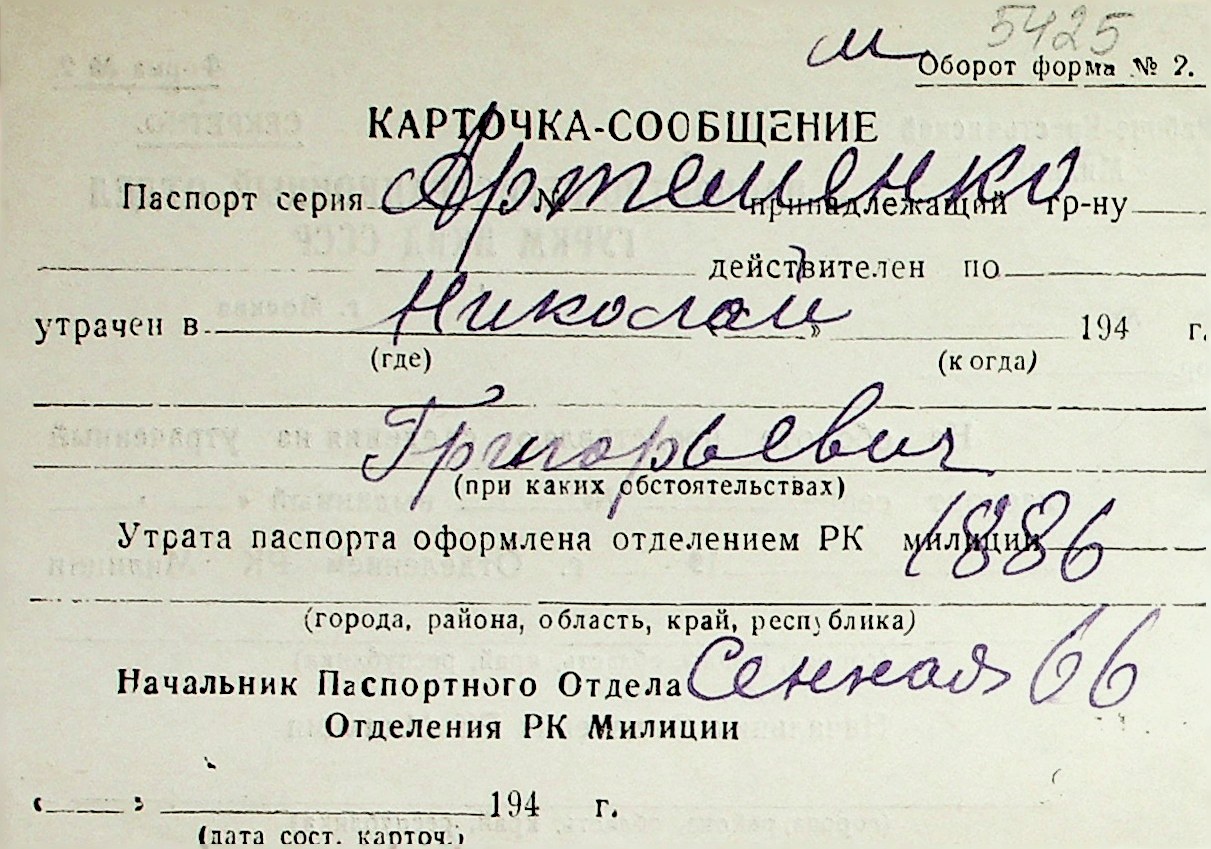 5425
м
Оборот форма № 2.
КАРТОЧКА-СООБЩЕНИЕ
Артеменко
Паспорт серия № принадлежащий гр-ну
действителен по
Николай
утрачен в « » 194 г.
(где) (когда)
Григорьевич
(при каких обстоятельствах)
Утрата паспорта оформлена отделением РК милиции
1886
(города, района, область, край, республика)
Начальник Паспортного Отдела
Сенная 66
Отделения РК Милиции
« » 194 г.
(дата сост. карточ.)